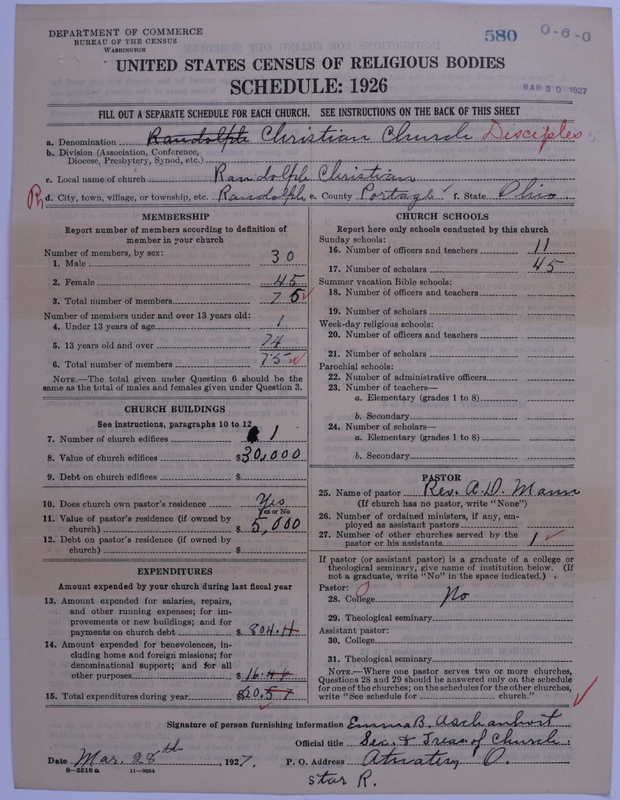 DEPARTMENT OF COMMERCE
BUREAU OF THE CENSUS
WASHINGTON
580 0-6-0
UNITED STATES CENSUS OF RELIGIOUS BODIES
SCHEDULE: 1926
MAR 30 1927
FILL OUT A SEPARATE SCHEDULE FOR EACH CHURCH. SEE INSTRUCTIONS ON THE BACK OF THIS SHEET
a. Denomination Randolph Christian Church Disciples
b. Division (Association, Conference, Diocese, Presbytery, Synod, etc.)
c. Local name of church Randolph Christian
d. City, town, village, or township, etc. Randolph e. County Portage f. State Ohio
MEMBERSHIP
Report number of members according to definition of member in your church
Number of members, by sex:
1. Male 30
2. Female 45
3. Total number of members 75
Number of members under and over 13 years old:
4. Under 13 years of age 1
5. 13 years old and over 74
6. Total number of members 75
NOTE.—The total given under Question 6 should be the same as the total of males and females given under Question 3.
CHURCH BUILDINGS
See instructions, paragraphs 10 to 12
7. Number of church edifices 1
8. Value of church edifices $30,000
9. Debt on church edifices $
10. Does church own pastor's residence Yes
Yes or No
11. Value of pastor's residence (if owned by church) $5,000
12. Debt on pastor's residence (if owned by church) $
EXPENDITURES
Amount expended by your church during last fiscal year
13. Amount expended for salaries, repairs, and other running expenses; for improvements or new buildings; and for payments on church debt $804.11
14. Amount expended for benevolences, including home and foreign missions; for denominational support; and for all other purposes $16.
15. Total expenditures during year $820.57
CHURCH SCHOOLS
Report here only schools conducted by this church
Sunday schools:
16. Number of officers and teachers 11
17. Number of scholars 45
Summer vacation Bible schools:
18. Number of officers and teachers
19. Number of scholars
Week-day religious schools:
20. Number of officers and teachers
21. Number of scholars
Parochial schools:
22. Number of administrative officers
23. Number of teachers—
a. Elementary (grades 1 to 8)
b. Secondary
24. Number of scholars—
a. Elementary (grades 1 to 8)
b. Secondary
PASTOR
25. Name of pastor Rev. A.D. Mann
(If church has no pastor, write "None")
26. Number of ordained ministers, if any, employed as assistant pastors
27. Number of other churches served by the pastor or his assistants 1
If pastor (or assistant pastor) is a graduate of a college or theological seminary, give name of institution below. (If not a graduate, write "No" in the space indicated.)
Pastor:
28. College No
29. Theological seminary
Assistant pastor:
30. College
31. Theological seminary
NOTE.—Where one pastor serves two or more churches, Questions 28 and 29 should be answered only on the schedule for one of the churches; on the schedules for the other churches, write "See schedule for church."
Signature of person furnishing information Emma B.
Official title Sec. & Treas. of Church
Date Mar. 28th, 1927. P. O. Address Atwater, O.
8-5518 a 11-9664
Star R.